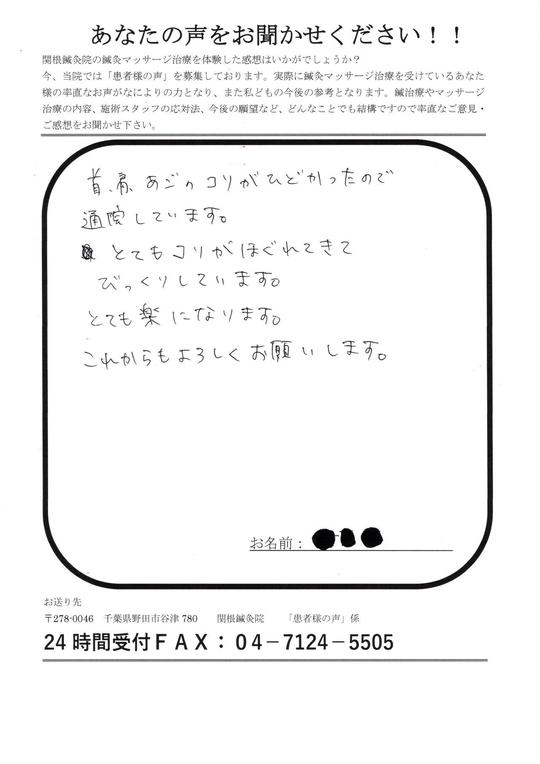 あなたの声をお聞かせください！！
関根鍼灸院の鍼灸マッサージ治療を体験した感想はいかがでしょうか？
今、当院では「患者様の声」を募集しております。実際に鍼灸マッサージ治療を受けているあなた
様の率直なお声がなによりの力となり、また私どもの今後の参考となります。鍼治療やマッサージ
治療の内容、施術スタッフの応対法、今後の願望など、どんなことでも結構ですので率直なご意見・
ご感想をお聞かせ下さい。
首、肩、あごのコリがひどかったので
通院しています。
とてもコリがほぐれてきて
びっくりしています。
とても楽になります。
これからもよろしくお願いします。
お名前：
お送り先
〒278-0046　千葉県野田市谷津 780　関根鍼灸院　「患者様の声」係
24 時間受付ＦＡＸ：０４－7124－5505